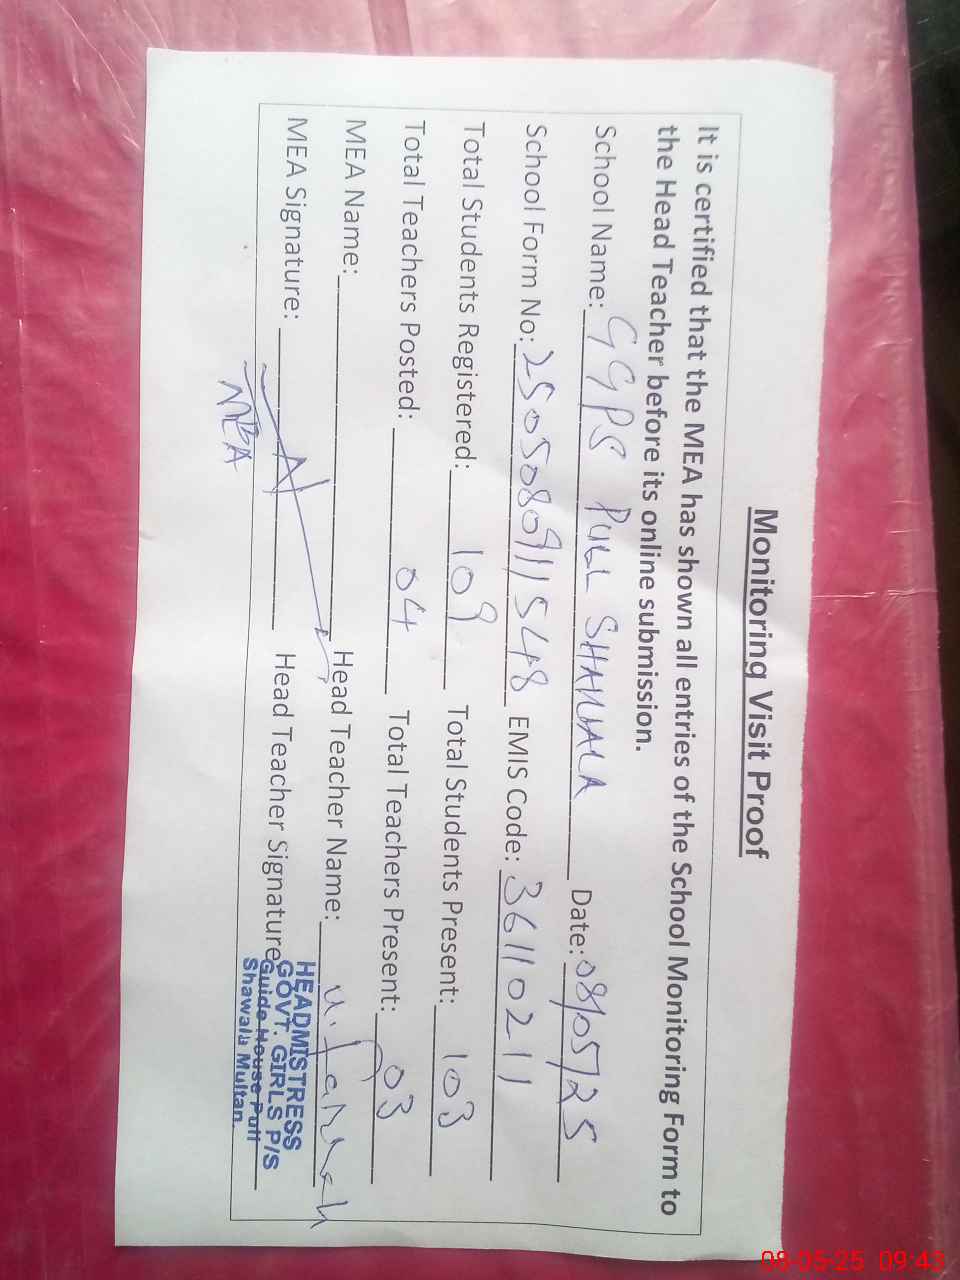 Monitoring Visit Proof
It is certified that the MEA has shown all entries of the School Monitoring Form to
the Head Teacher before its online submission.
School Name: GGPS PULL SHAWALA Date: 08/05/25
School Form No: 2505080911548 EMIS Code: 36110211
Total Students Registered: 109 Total Students Present: 103
Total Teachers Posted: 04 Total Teachers Present: 03
MEA Name: Head Teacher Name:
MEA Signature: Head Teacher Signature
MEA
HEADMISTRESS
GOVT. GIRLS P/S
Guide House Pull
Shawala Multan.
08-05-25 09:43